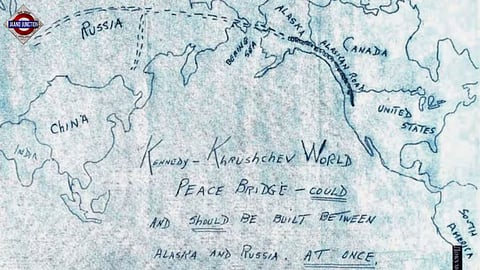 JIANG JUNCTION
RUSSIA
ALASKA
CANADA
BERING
SEA
ALASKAN ROAD
UNITED
STATES
CHINA
INDIA
SOUTH
AMERICA
KENNEDY - KHRUSHCHEV WORLD
PEACE BRIDGE - COULD
AND SHOULD BE BUILT BETWEEN
ALASKA AND RUSSIA. AT ONCE.